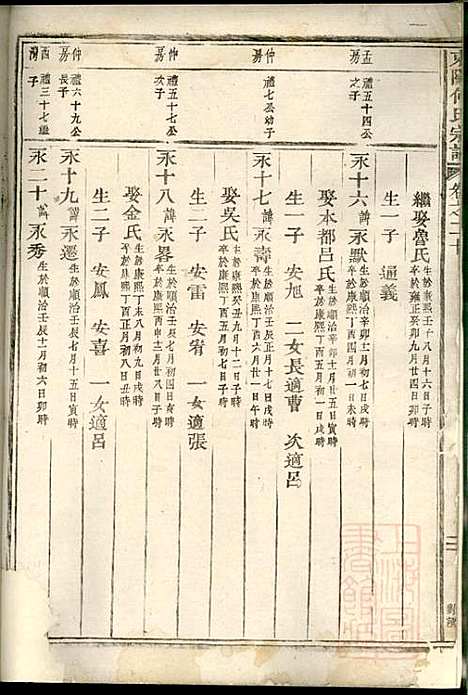 東陽何氏宗譜
繼娶魯氏 生於康熙壬子八月十六日子時 卒於雍正癸卯九月廿四日子時
生一子 通義
孟房 禮五十四公之子
永十六 諱永默 生於順治辛卯二月初七日戌時 卒於康熙丁酉四月初一日戌時
娶本都呂氏 生於順治辛卯十一月廿五日寅時 卒於康熙丁酉五月初一日戌時
生一子 安旭 二女長適曹 次適呂
仲房 禮七公幼子
永十七 諱永壽 生於順治壬辰正月十七日戌時
娶吳氏 生於康熙癸丑九月十二日子時 卒於康熙
生二子 安雷 安宥 一女適張
仲房 禮五十七公次子
永十八 諱永畧 生於順治壬辰七月初四日亥時
娶金氏 生於康熙丁未八月初九日戌時 卒於康熙丁酉
生二子 安鳳 安喜 一女適呂
仲房 禮六十九公長子
永十九 諱永遷 生於順治壬辰七月十五日寅時
禮三十七繼子
永二十 諱永秀 生於順治壬辰十二月初六日卯時